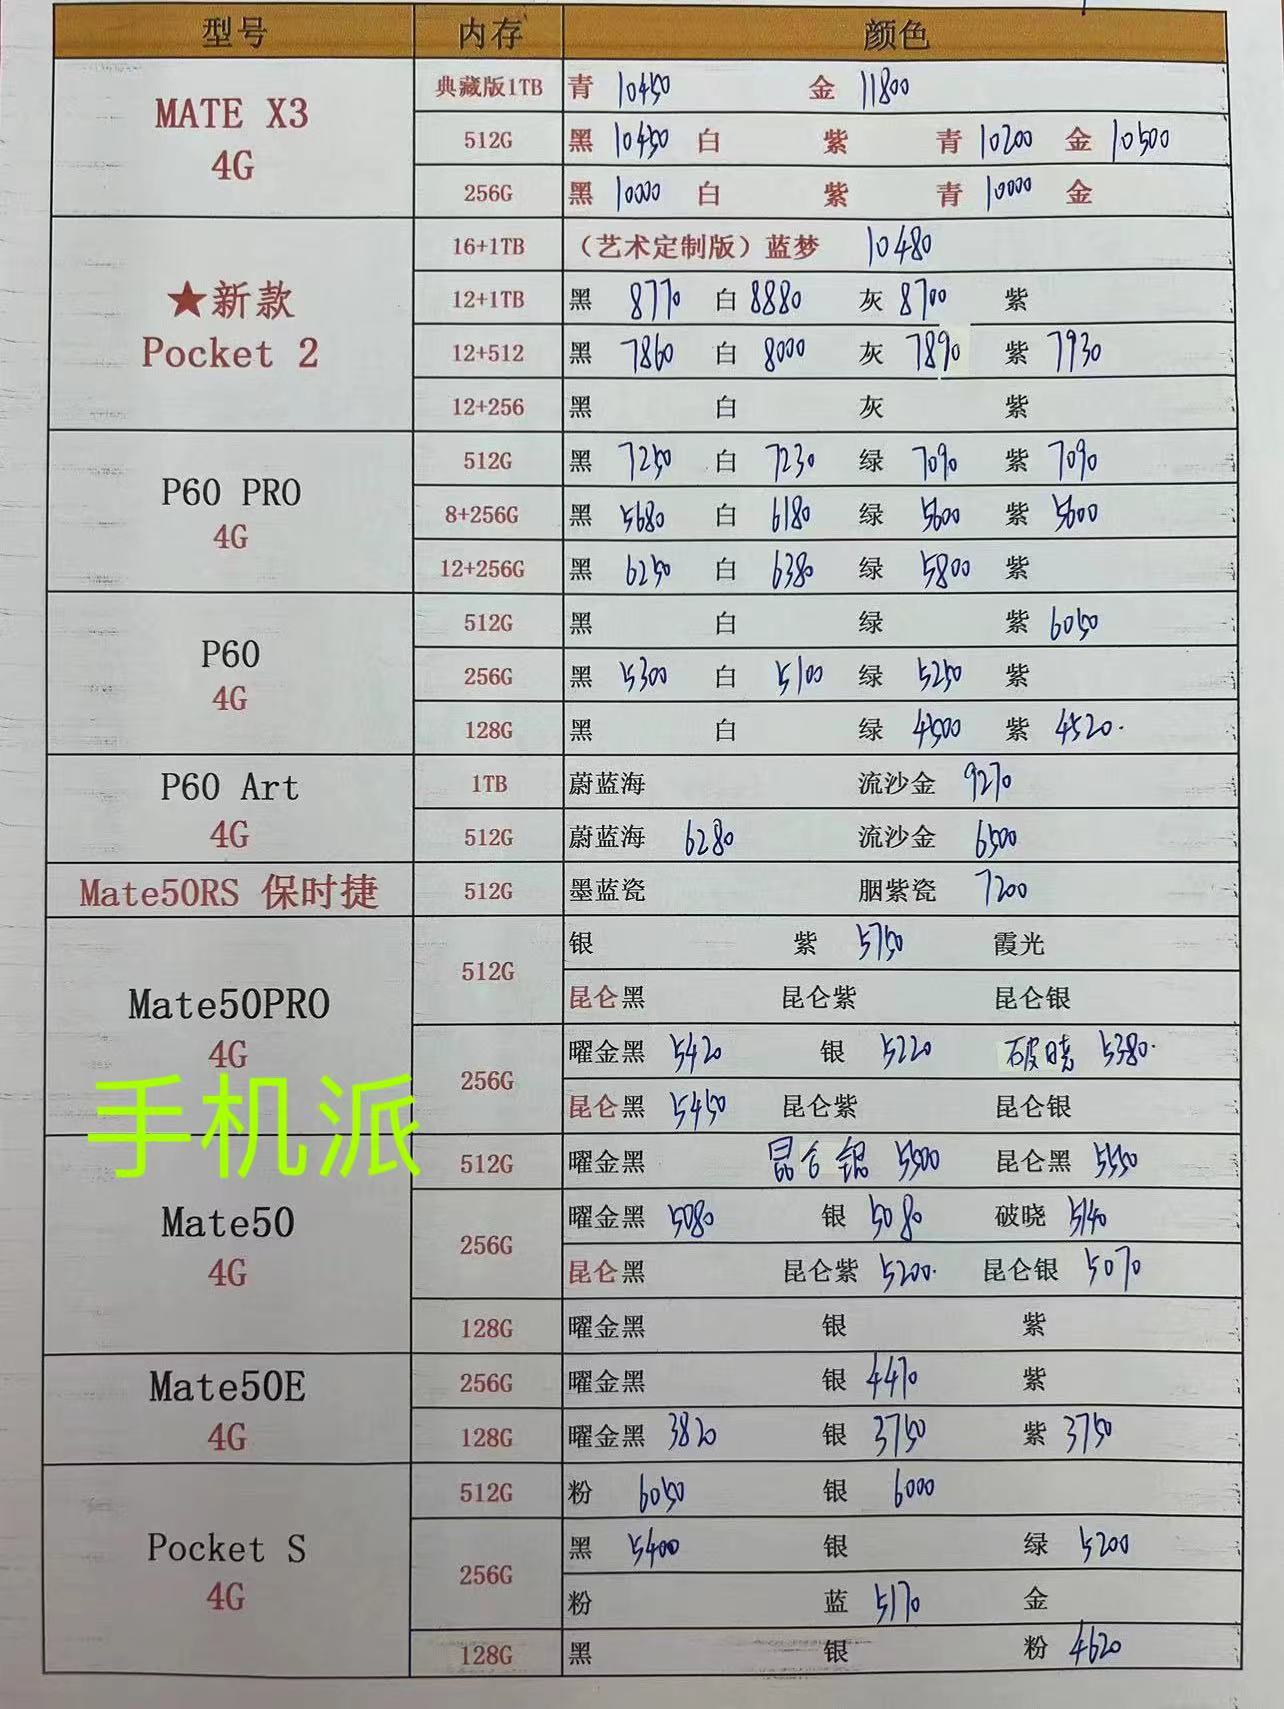 型号 内存 颜色
MATE X3 4G
典藏版1TB 青 10450 金 11800
512G 黑 10450 白 紫 青 10200 金 10500
256G 黑 10000 白 紫 青 10000 金
★新款 Pocket 2
16+1TB （艺术定制版）蓝梦 10480
12+1TB 黑 8770 白 8880 灰 8700 紫
12+512 黑 7860 白 8000 灰 7890 紫 7930
12+256 黑 白 灰 紫
P60 PRO 4G
512G 黑 7250 白 7230 绿 7090 紫 7090
8+256G 黑 5680 白 6180 绿 5600 紫 5600
12+256G 黑 6250 白 6380 绿 5800 紫
P60 4G
512G 黑 白 绿 紫 6050
256G 黑 5300 白 5100 绿 5250 紫
128G 黑 白 绿 4500 紫 4520.
P60 Art 4G
1TB 蔚蓝海 流沙金 9270
512G 蔚蓝海 6280 流沙金 6500
Mate50RS 保时捷 512G 墨蓝瓷 胭紫瓷 7200
Mate50PRO 4G
512G 银 紫 5750 霞光
昆仑黑 昆仑紫 昆仑银
256G 曜金黑 5420 银 5220 破晓 5380.
昆仑黑 5450 昆仑紫 昆仑银
手机派
Mate50 4G
512G 曜金黑 昆仑银 5500 昆仑黑 5550
256G 曜金黑 5080 银 5080 破晓 5140
昆仑黑 昆仑紫 5200. 昆仑银 5070
128G 曜金黑 银 紫
Mate50E 4G
256G 曜金黑 银 4470 紫
128G 曜金黑 3820 银 3750 紫 3750
Pocket S 4G
512G 粉 6050 银 6000
256G 黑 5400 银 绿 5200
粉 蓝 5170 金
128G 黑 银 粉 4620